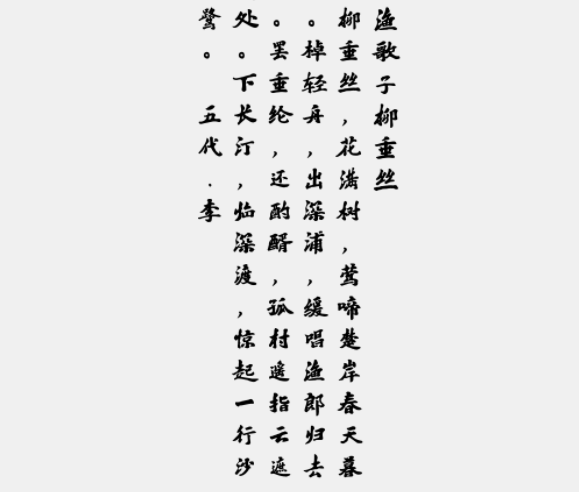 渔歌子柳垂丝
柳垂丝，花满树，莺啼楚岸春天暮
。棹轻舟，出深浦，缓唱渔郎归去
。罢垂纶，还酌醑，孤村遥指云遮
处。下长汀，临深渡，惊起一行沙
鹭。 五代.李